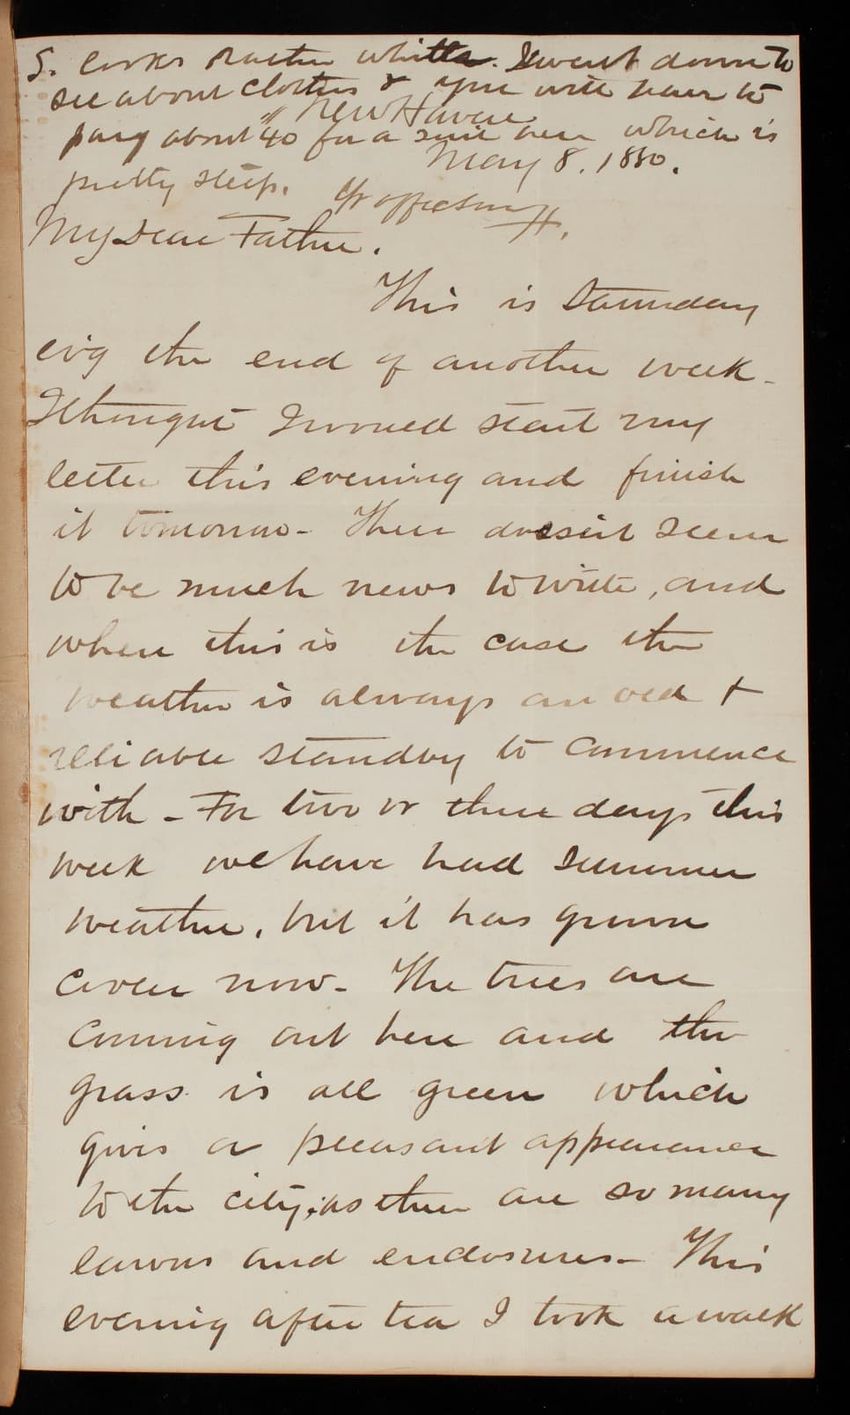 S. looks rather whittn. I went down to
see about clothes & you will have to
New Haven
pay about $40 for a suit here which is
May 8. 1880.
pretty steep. Yr affecson H.
My Dear Father.
This is Saturday
evg the end of another week.
I thought I would start my
letter this evening and finish
it tomorrow - There doesent seem
to be much news to write, and
when this is the case the
weather is always an old &
reliable standby to commence
with - For two or three days this
week we have had summer
weather, but it has grown
cooler now - The trees are
coming out here and the
grass is all green which
gives a pleasant appearance
to the city, as there are so many
lawns and enclosures - This
evening after tea I took a walk